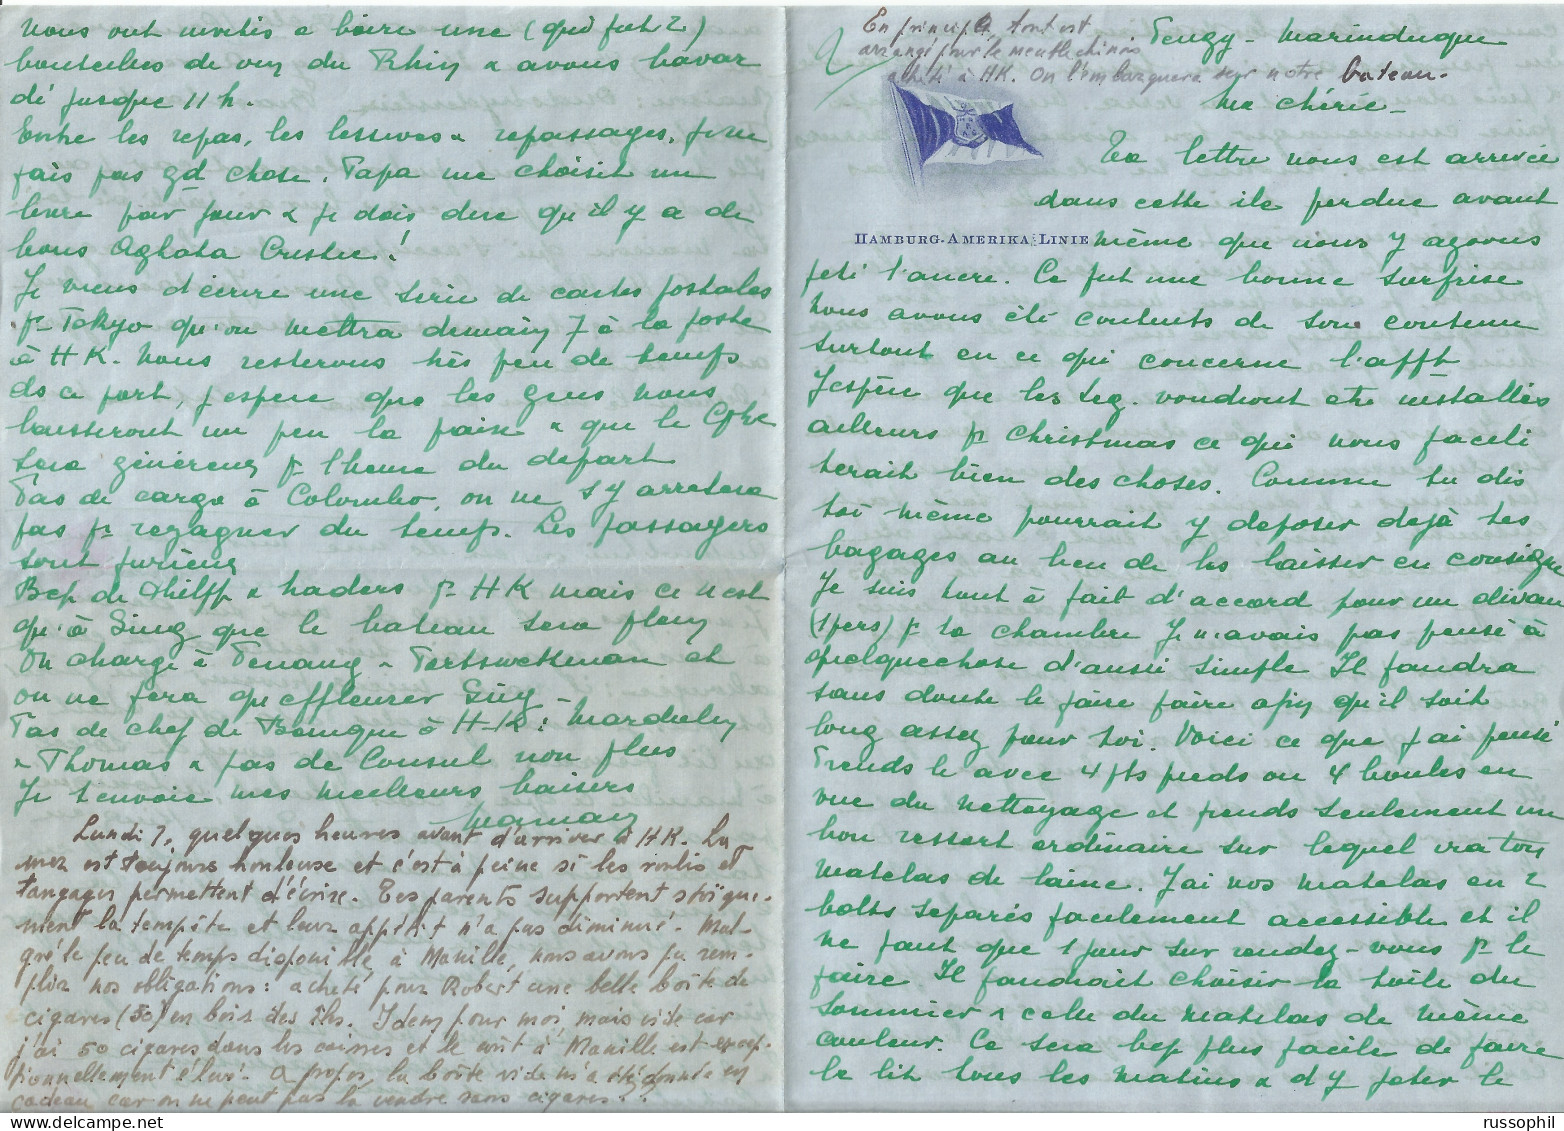 En principe, tout est
arrangé pour le meuble chinois
acheté à HK. On l'embarquera sur notre bateau.
Marinduque
Ma chérie -
Ta lettre nous est arrivée
dans cette île perdue avant
HAMBURG-AMERIKA LINIE
même que nous y ayons
jeté l'ancre. Ce fut une bonne surprise
Nous avons été contents de son contenu
surtout en ce qui concerne l'afft
J'espère que les Leg. voudront être installés
ailleurs pr Christmas ce qui nous facili
terait bien des choses. Comme tu dis
toi même pourrait y déposer déjà tes
bagages au lieu de les laisser en consigne
Je suis tout à fait d'accord pour un divan
(1 pers) pr ta chambre Je n'avais pas pensé à
quelquechose d'aussi simple Il faudra
sans doute le faire faire afin qu'il soit
long assez pour toi. Voici ce que j'ai pensé
Prends le avec 4 pts pieds ou 4 boules en
vue du nettoyage et prends seulement un
bon ressort ordinaire sur lequel ira ton
matelas de laine. J'ai nos matelas en 2
bolts séparés facilement accessible et il
ne faut que 1 jour sur rendez-vous pr le
faire Il faudrait choisir la toile du
sommier & celui du matelas de même
couleur. Ce sera bcp plus facile de faire
le lit tous les matins & d'y jeter le
Nous ont invités à boire une (qui fut 2)
bouteilles de vin du Rhin & avons bavar
dé jusque 11 h.
Entre les repas, les lessives & repassages, je ne
fais pas gd chose. Papa me choisit un
livre par jour & je dois dire qu'il y a de
bons Aghata Cristie!
Je viens d'écrire une série de cartes postales
pr Tokyo qu'on mettra demain 7 à la poste
à HK. Nous resterons très peu de temps
ds ce port, j'espère que les gens nous
laisseront un peu la paix & que le
sera généreux pr l'heure du départ
Pas de cargo à Colombo, on ne s'y arrêtera
pas pr regagner du temps. Les passagers
sont furieux
Bcp de & pr HK mais ce n'est
qu'à Sing que le bateau sera plein
On charge à Penang - et
on ne fera qu'effleurer
Pas de chef de Banque à H-K:
& Thomas & pas de Consul non plus
Je t'envoie mes meilleurs baisers
Maman
Lundi 7, quelques heures avant d'arriver à HK. La
mer est toujours houleuse et c'est à peine si les roulis et
tangages permettent d'écrire. Tes parents supportent stoïque-
ment la tempête et leur appétit n'a pas diminué. Mal-
gré le peu de temps disponible à Manille, nous avons pu rem-
plir nos obligations: acheté pour Robert une belle boîte de
cigares (50) en bois des îles. Idem pour moi, mais vide car
j'ai 50 cigares dans les caisses et le coût à Manille est excep-
tionnellement élevé. A propos, la boîte vide m'a été donnée en
cadeau car on ne peut pas la vendre sans cigares!!